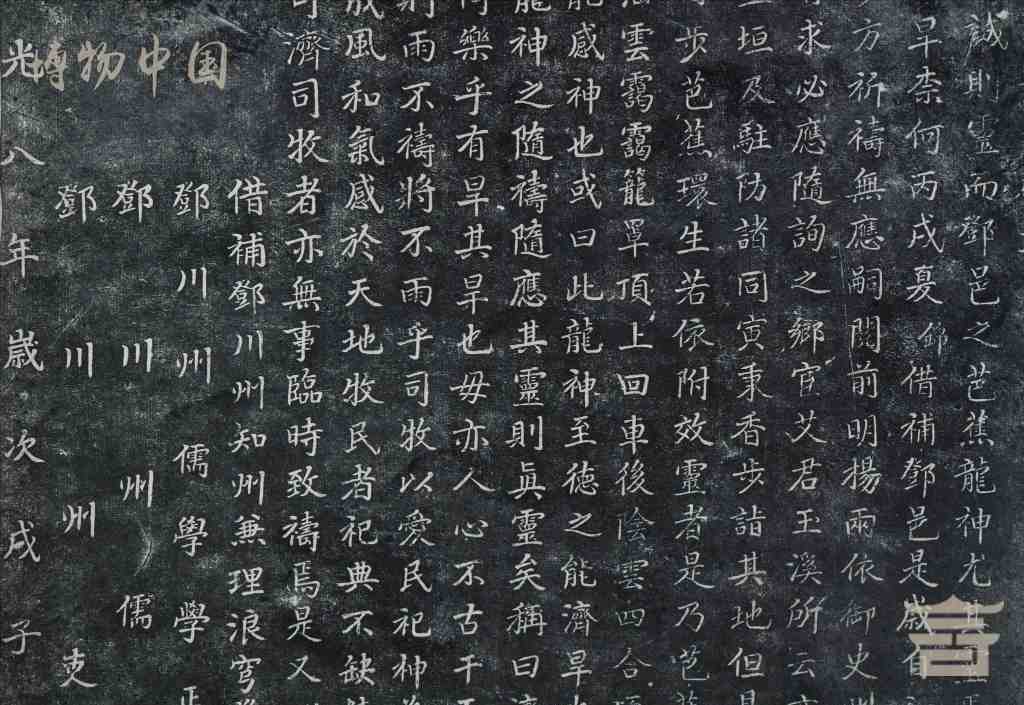 誠則靈而鄧邑之芭蕉龍神尤其
旱柰何丙戌夏鄧借補鄧邑是歲自
方祈禱無應嗣閱前明楊兩依御史
求必應隨詢之鄉宦艾君玉溪所云
垣及駐防諸同寅秉香步詣其地但見
步芭蕉環生若依附效靈者是乃芭蕉
雲靄靄籠罩頂上回車後陰雲四合
能感神也或曰此龍神至德之能濟旱
龍神之隨禱隨應其靈則真靈矣稱曰濟
何樂乎有旱其旱也毋亦人心不古干
則雨不禱將不雨乎司牧以愛民祀神為
咸風和氣感於天地牧民者祀典不缺
濟司牧者亦無事臨時致禱焉是又
借補鄧川州知州兼理浪穹
鄧川州儒學學正
鄧川州儒
鄧川州吏
光八年歲次戌子
博物中国